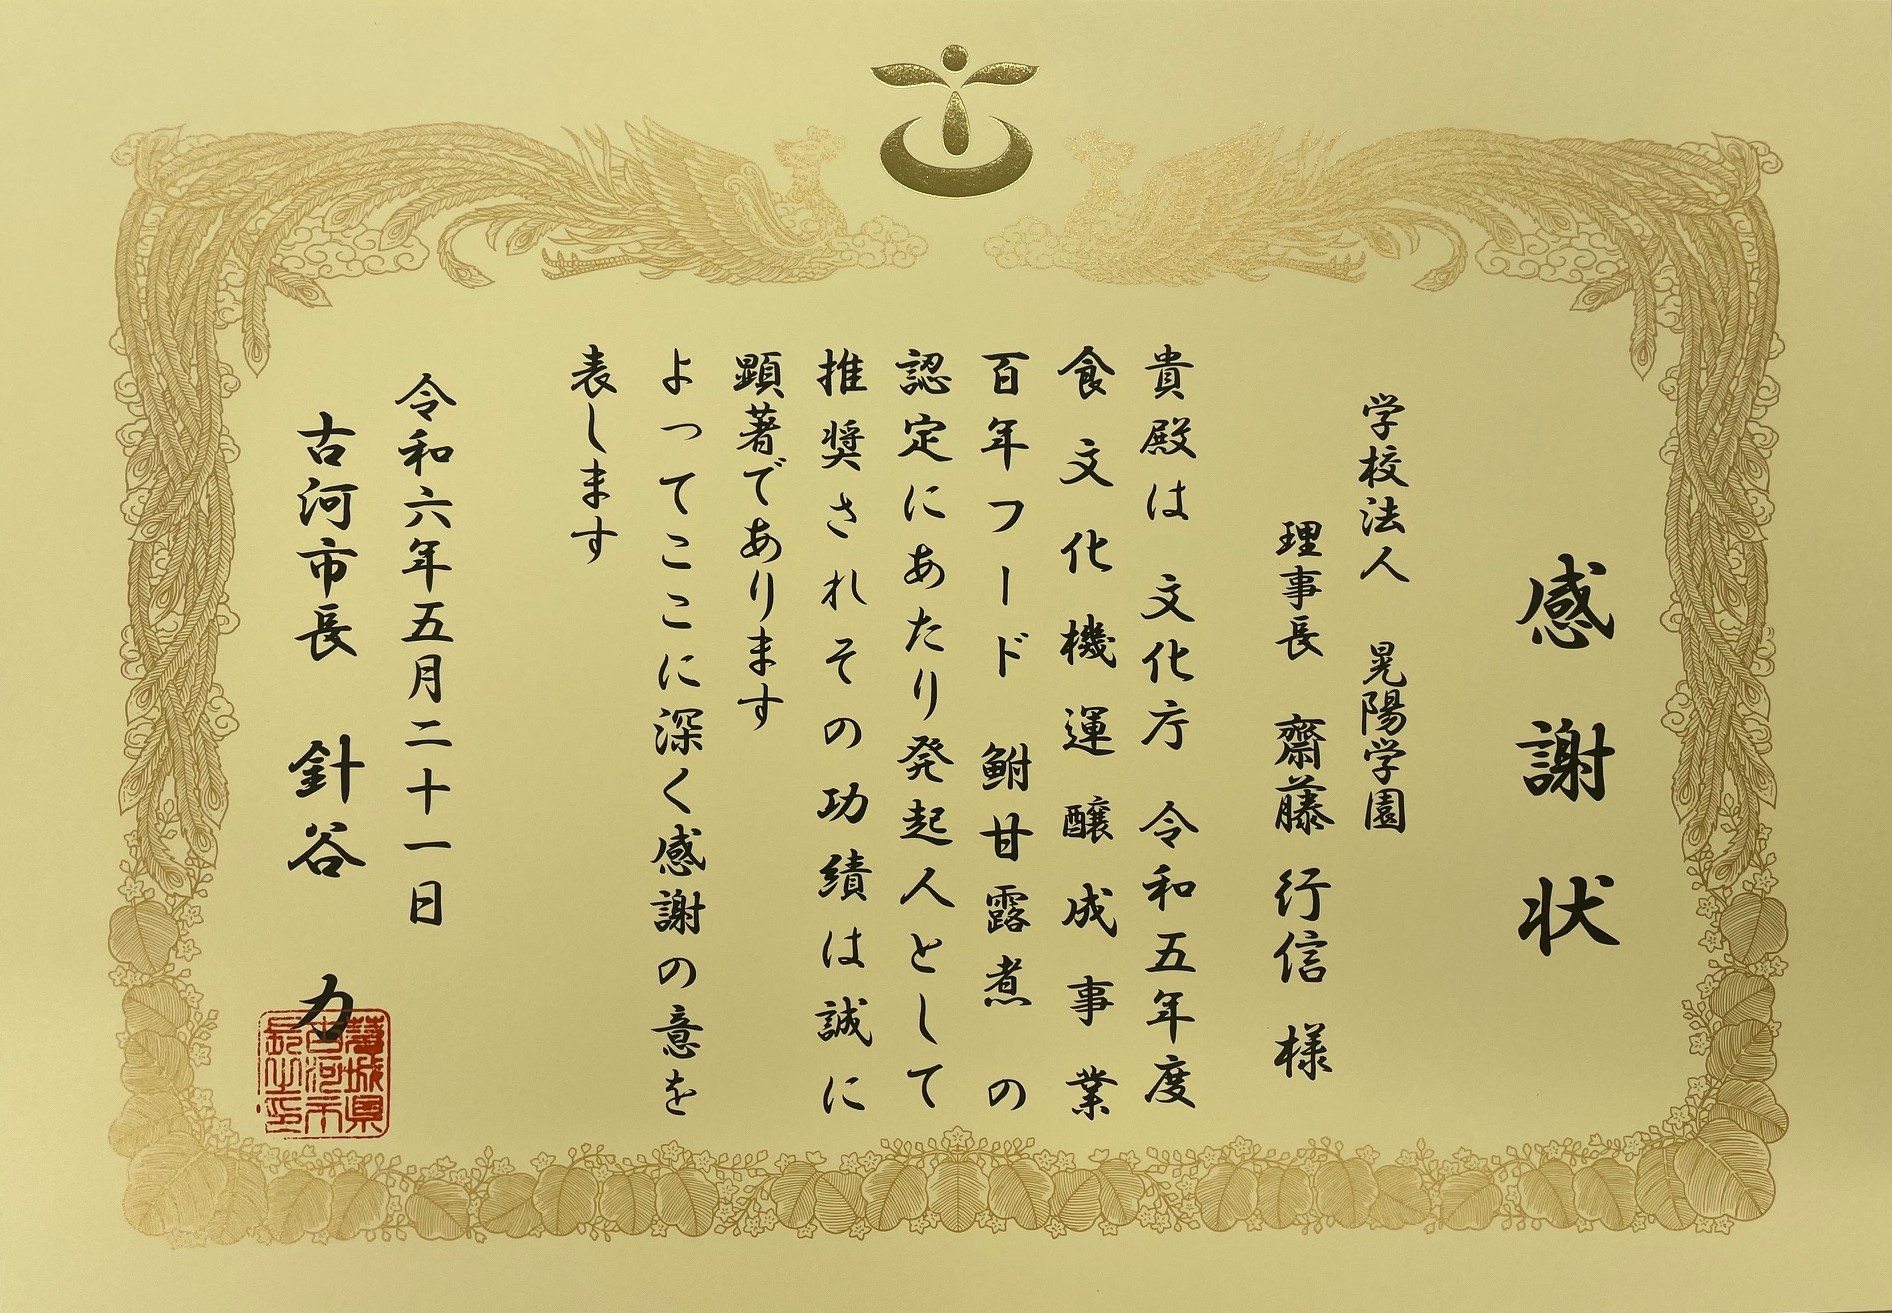 感謝状
学校法人 晃陽学園
理事長 齋藤 行信 様
貴殿は 文化庁 令和五年度
食文化機運醸成事業
百年フード 鮒甘露煮の
認定にあたり発起人として
推奨されその功績は誠に
顕著であります
よってここに深く感謝の意を
表します
令和六年五月二十一日
古河市長 針谷 力
茨城県
古河市
長之印